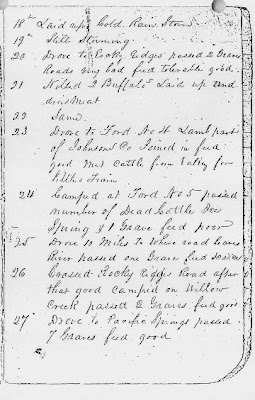 18th Laid up. Cold Rain Storm
19th Still Storming
20 Drove to Rocky Ridges passed 2 Graves
Roads very bad feed tolerable good
21 Killed 2 Buffalo Laid up and
dried Meat
22 Same.
23 Drove to Ford No 4 Lamb part
of Johnson Co Joined in feed
good Met cattle from Valley for
Train
24 Camped at Ford No 5 passed
number of Dead Cattle Ice
Spring & 1 Grave feed poor
25 Drove 10 Miles to Where road leaves
River passed one Grave feed scarce
26 Crossed Rocky Ridge Road after
that good camped on Willow
Creek passed 2 Graves feed good
27th Drove to Pacific Springs passed
7 Graves feed good